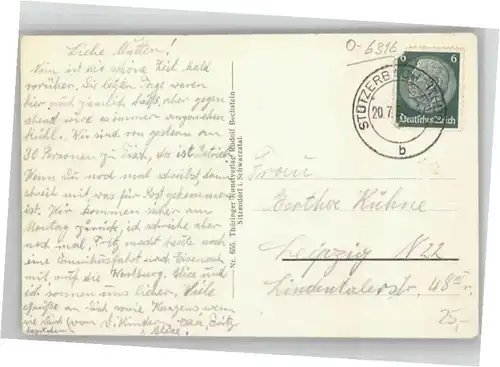 Liebe Mutter!
Nun ist die schöne Zeit bald
vorüber, die letzten Tage waren
hier noch ziemlich heiß, aber gegen
abend wird es immer angenehm
kühl. Wir sind von gestern an
30 Personen zu Tisch, da ist Betrieb.
Wenn Du noch mal schreibst, dann
schreib mit, was für Post gekommen
ist. Wir kommen sicher am
Montag zurück, ich schreibe aber
noch mal, Fritz macht heute noch
eine Omnibusfahrt nach Eisenach
mit, auf die Wartburg. Else und
ich sonnen uns lieber. Viele
Grüße an Dich sowie
wie Dich von Kindern
Else.
Nr. 655. Thüringer Kunstverlag Rudolf Bechstein
Sitzendorf i. Schwarzatal.
O-6316
6 6
Deutsches Reich
STÜTZERBACH
20.7.
b
Frau
Bertha Kühne
Leipzig N 22
Lindenthalerstr. 48 III.
25,-